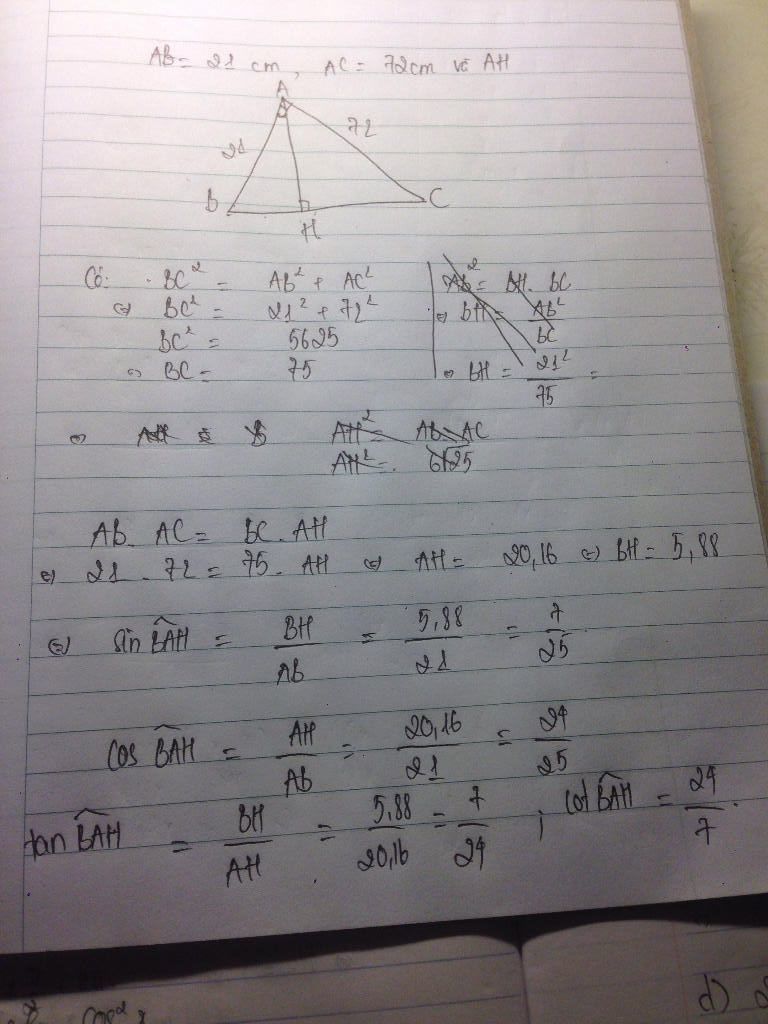 AB = 21 cm, AC = 72cm vẽ AH
A
21
72
B
H
C
Có: BC² = AB² + AC²
⇔ BC² = 21² + 72²
BC² = 5625
⇔ BC = 75
AB² = BH. BC
⇔ BH = AB²/BC
⇔ BH = 21²/75 =
⇔ AH =
AH² = AB. AC
AH² =
AB. AC = BC. AH
⇔ 21 . 72 = 75. AH ⇔ AH = 20,16 ⇔ BH = 5,88
⇔ sin BAH = BH/AB = 5,88/21 = 7/25
cos BAH = AH/AB = 20,16/21 = 24/25
tan BAH = BH/AH = 5,88/20,16 = 7/24 ; cot BAH = 24/7.
cos² x
d)